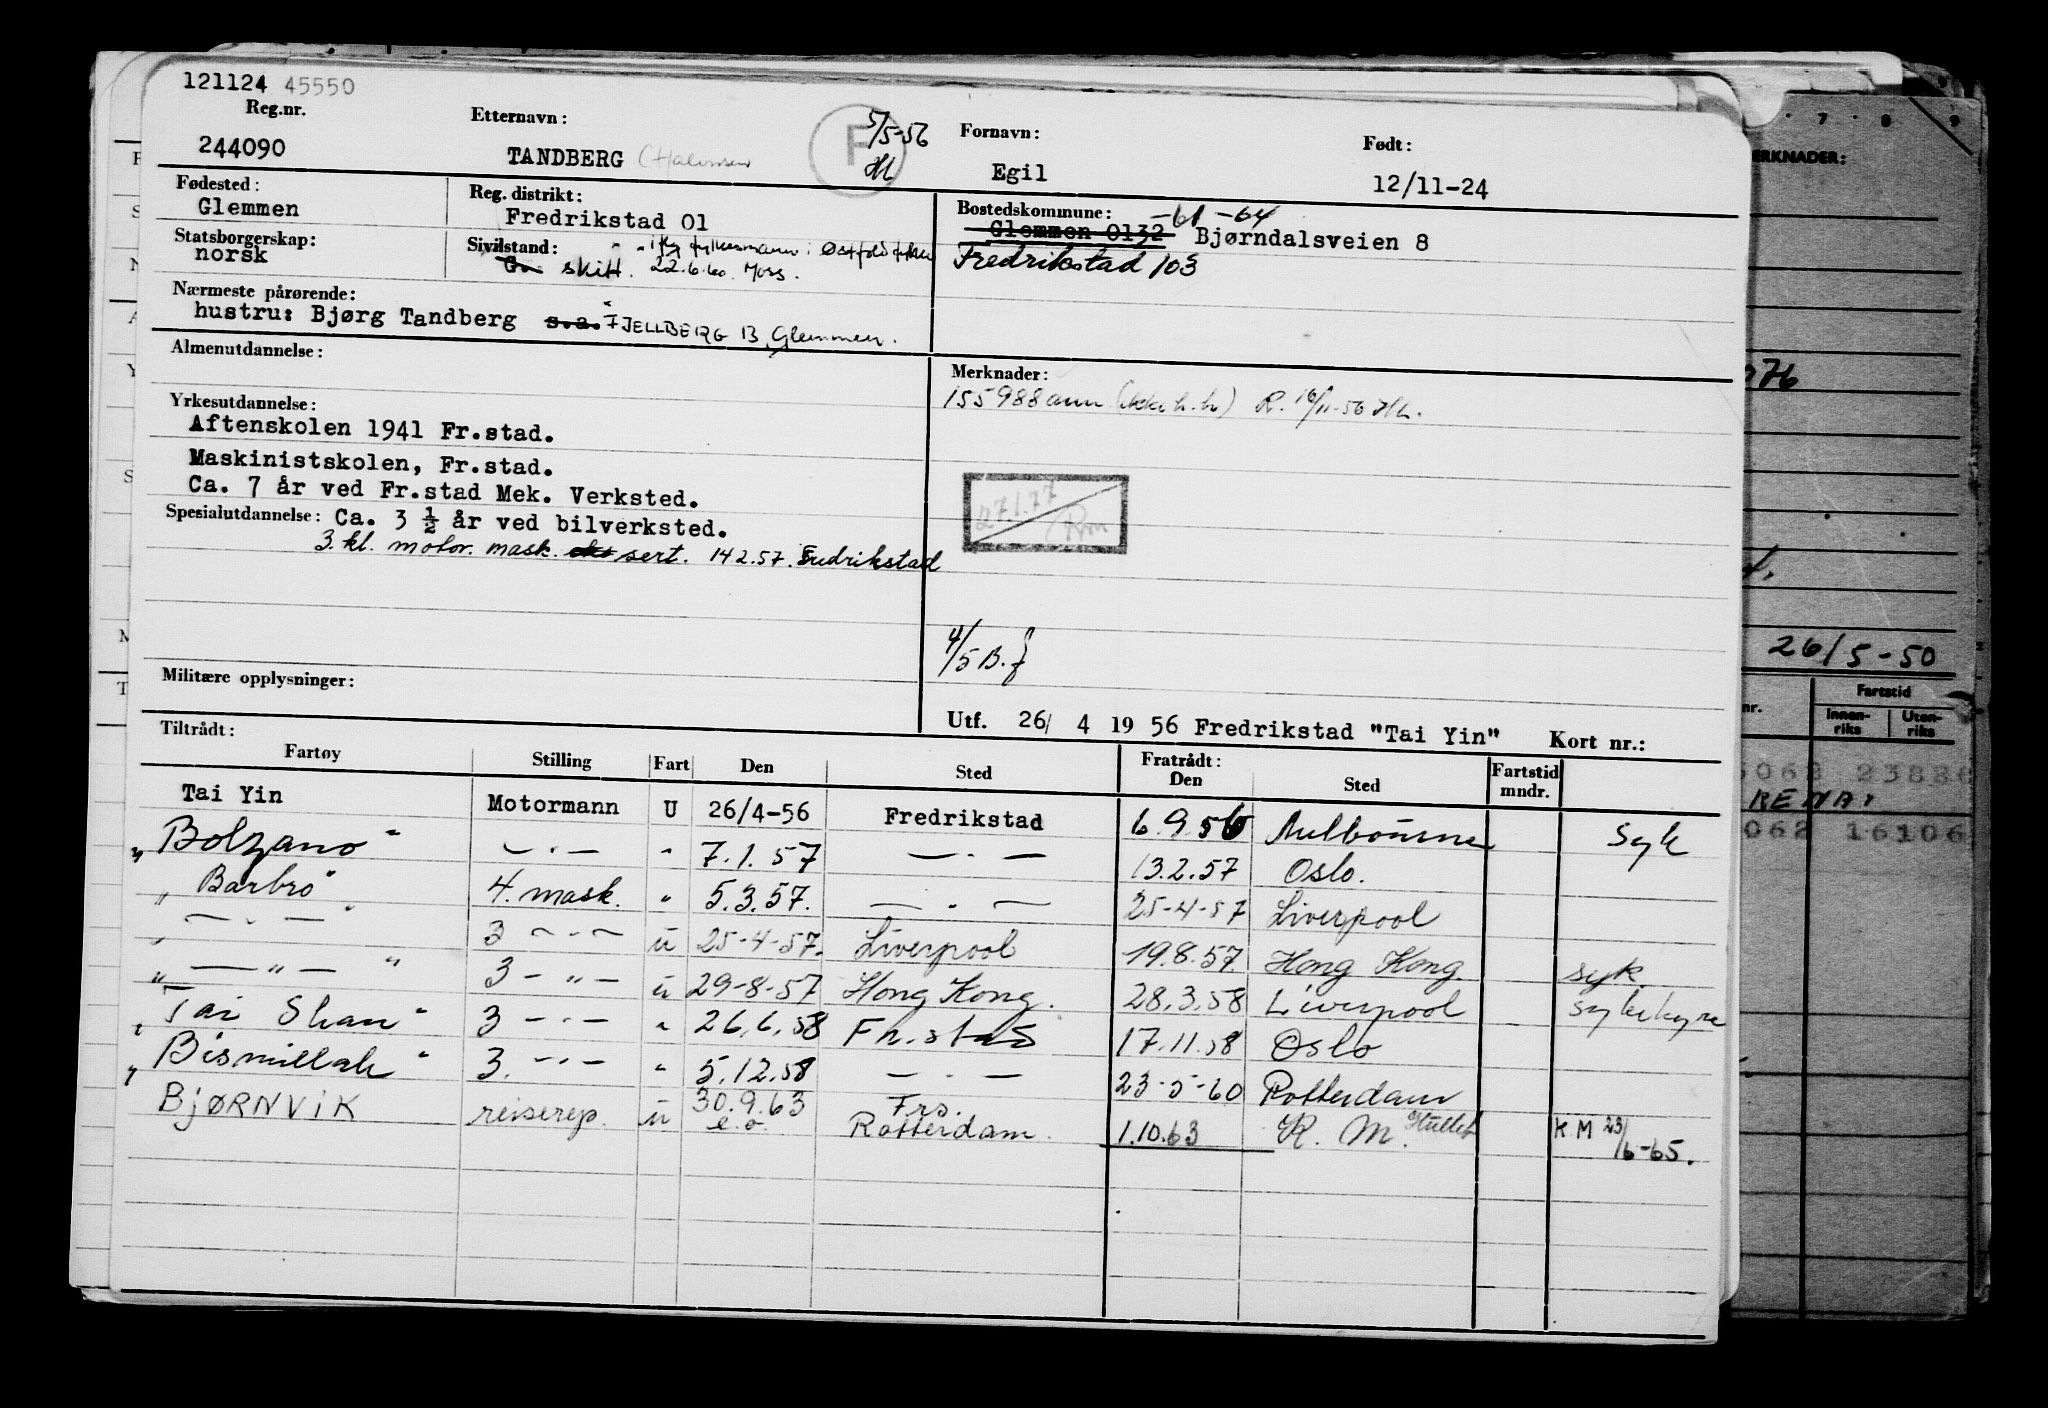 121124 45550
Reg.nr. Etternavn: 5/5-56 Fornavn: Født:
244090 TANDBERG F Egil 12/11-24
Fødested: Reg. distrikt: Bostedskommune: -61 -64
Glemmen Fredrikstad 01 Glemmen 0132 Bjørndalsveien 8
Statsborgerskap: Sivilstand: Fredrikstad 103
norsk skilt. 22.6.60. Moss.
Nærmeste pårørende:
hustru: Bjørg Tandberg s.a. FJELLBERG 13, Glemmen.
Almenutdannelse: Merknader:
155988 ann R. 16/11-56
Yrkesutdannelse:
Aftenskolen 1941 Fr.stad.
Maskinistskolen, Fr.stad.
Ca. 7 år ved Fr.stad Mek. Verksted. 27.1.77
Spesialutdannelse: Ca. 3 ½ år ved bilverksted.
3. kl. motor. mask. sert. 14 2.57. Fredrikstad
4/5 B.
Militære opplysninger:
Utf. 26/ 4 19 56 Fredrikstad "Tai Yin" Kort nr.:
Tiltrådt: Fratrådt:
Fartøy Stilling Fart Den Sted Den Sted Fartstid mndr.
Tai Yin Motormann U 26/4-56 Fredrikstad 6.9.56 Melbourne syk
„Bolzano" — · — " 7.1.57 — · — 13.2.57 Oslo.
„Barbro" 4. mask. " 5.3.57. — " — 25-4-57 Liverpool
„— " — " 3 — " — u 25-4-57. Liverpool 19.8.57. Hong Kong syk.
„— " — " 3 — " — u 29-8-57 Hong Kong. 28.3.58 Liverpool sykehyre
„Tai Shan" 3 — " — " 26.6.58 Fr.stad 17.11.58 Oslo
„Bismillah" 3. — " — " 5.12.58 — " — 23-5-60 Rotterdam
BJØRNVIK reiserep. u 30.9.63 Frs.
e.o. Rotterdam. 1.10.63 K. M. KM 23/6-65.
7 8 9
MERKNADER:
26/5-50
Fartstid
Innen-riks Uten-riks